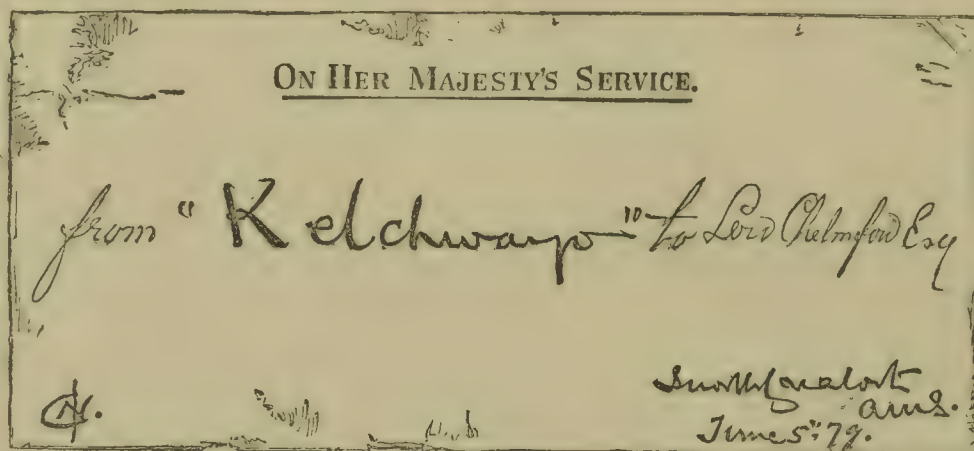 ON HER MAJESTY'S SERVICE.
from "Ketchwayo" to Lord Chelmsford Esq
June 5th 79.